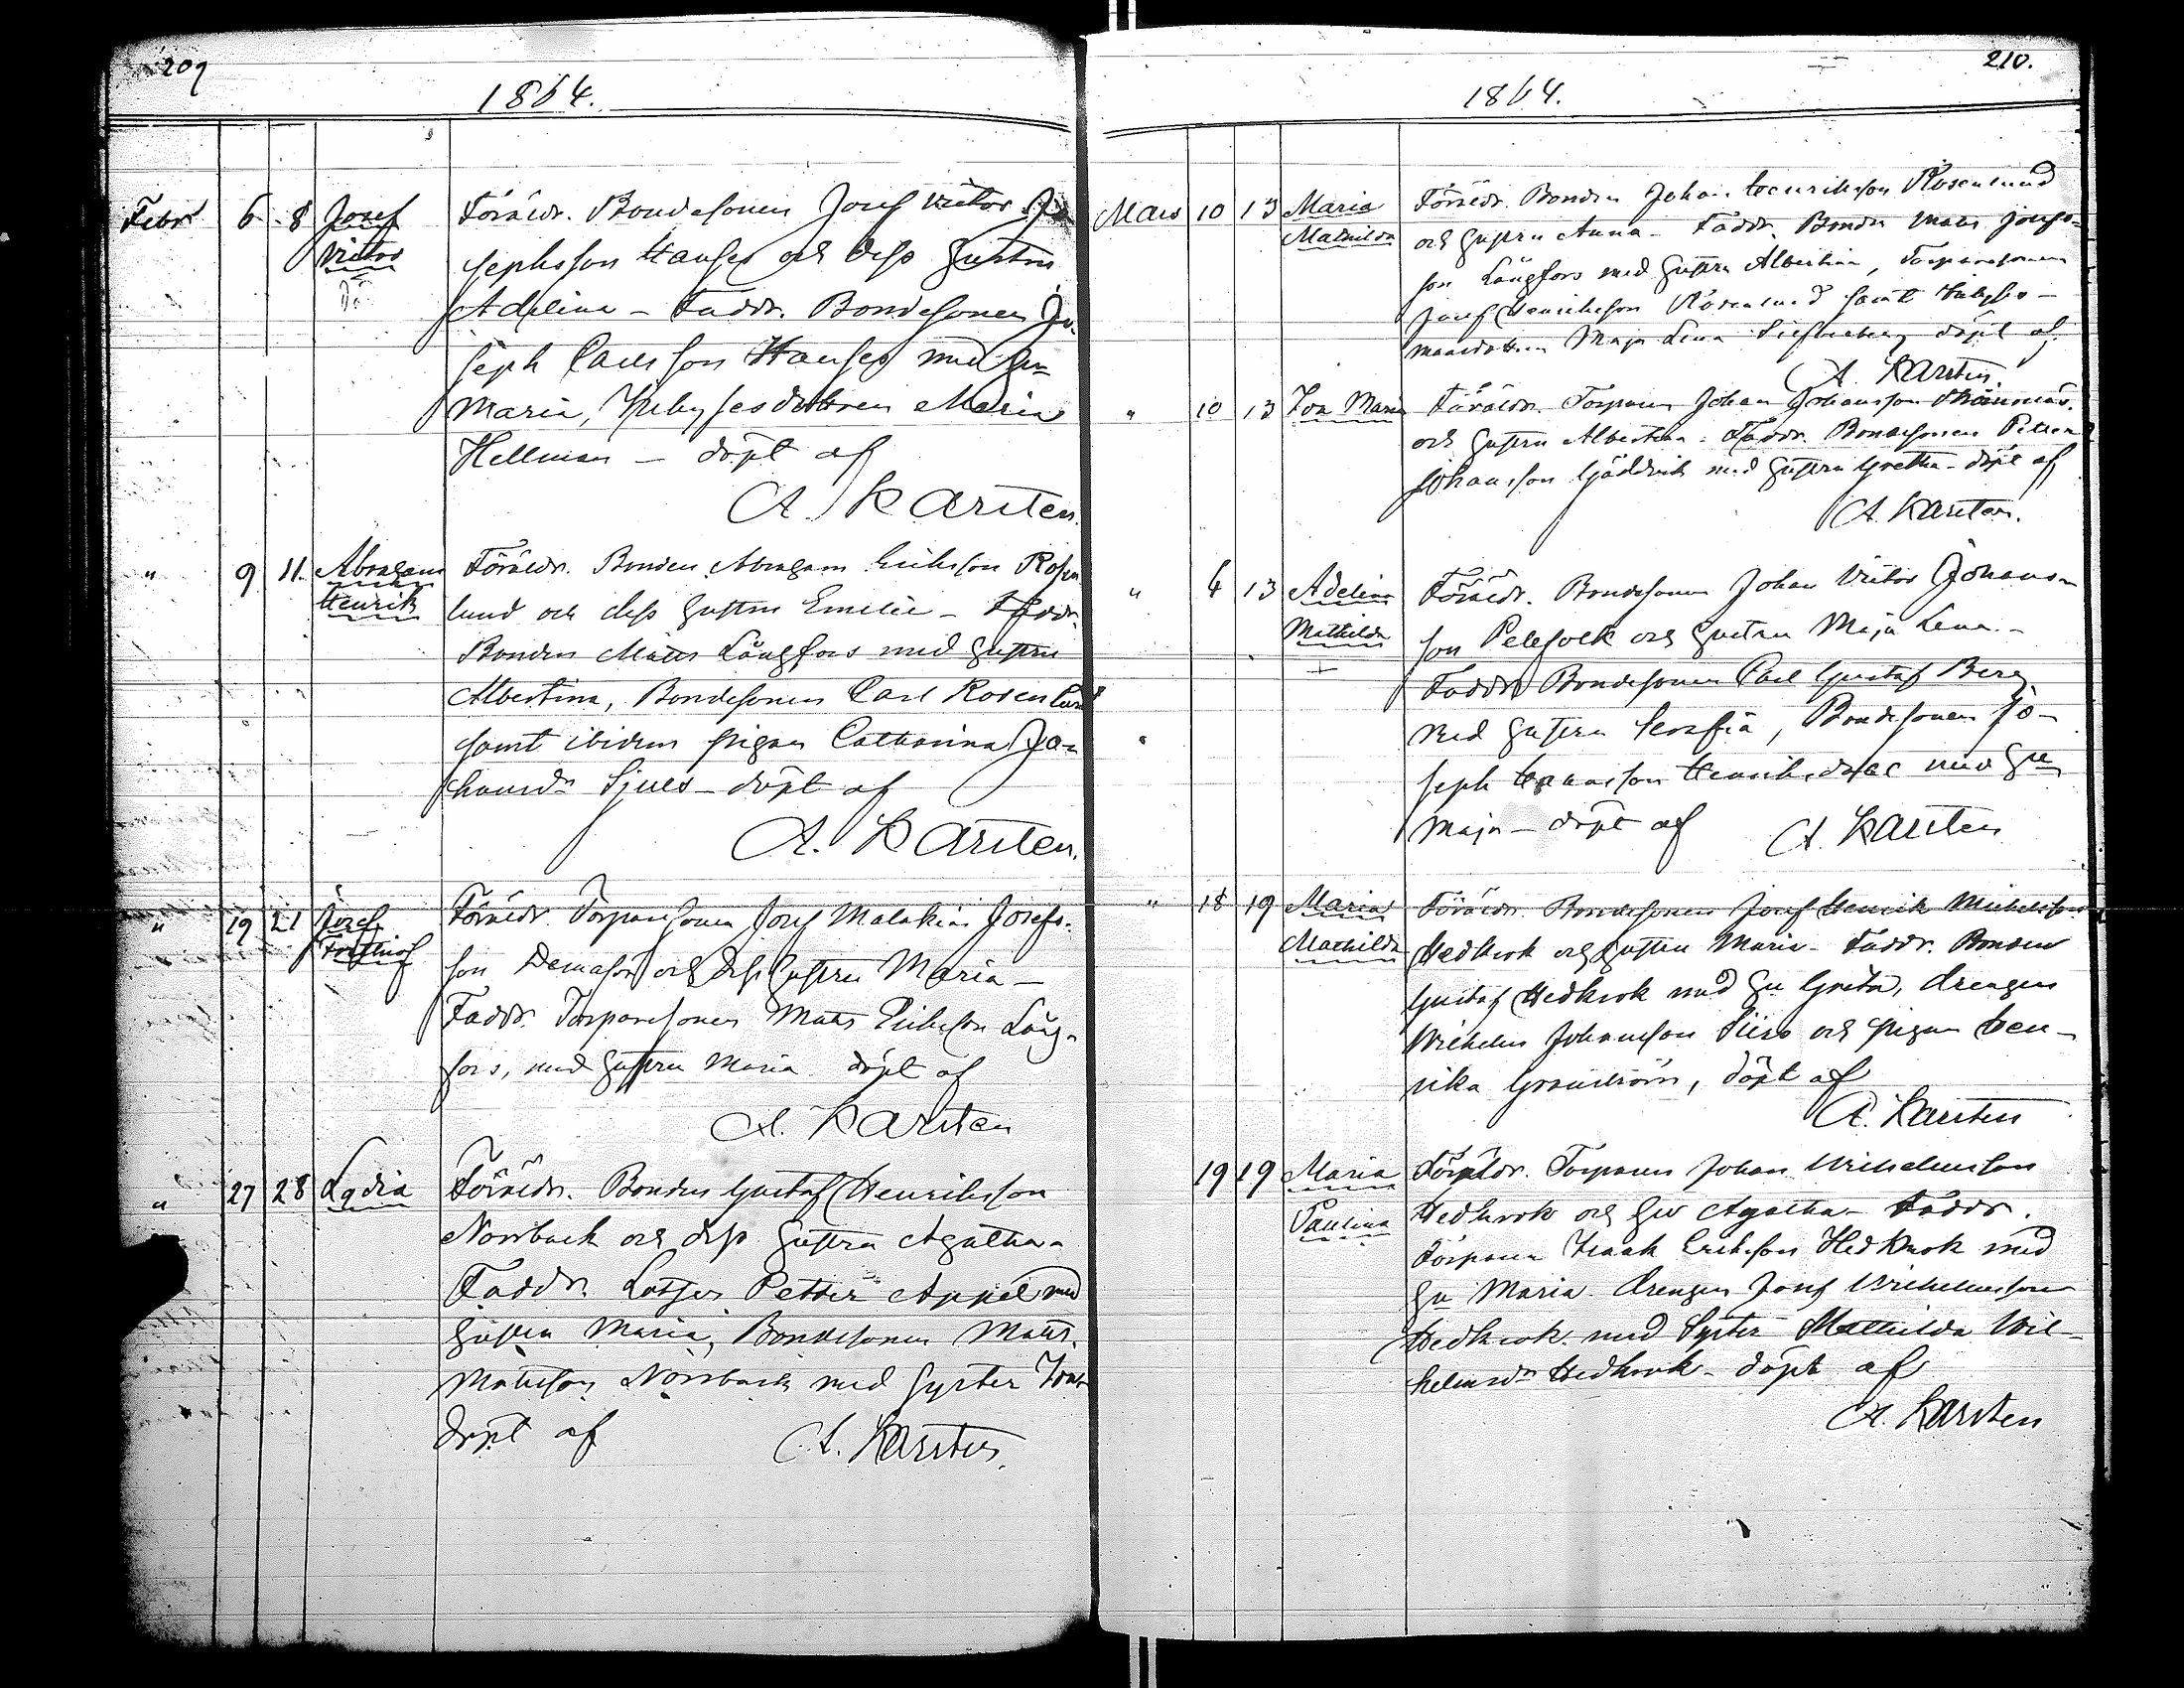 209
1864.
Febr 6 8 Josef Föräldr. Bondesonen Josef Victor Jo
Victor sephsson Hauses och dess Gustru
Adelina – Faddr. Bondesonen Jo
seph Carlsson Hauses med Gu
Maria, Dottren Maria
Hellman – döpt af
A. Karsten.
" 9 11. Abraham Föräldr. Bonden Abraham Eriksson Rosen
Henrik lund och dess Gustru Emelie – Faddr.
Bonden Matts Långfors med Gustru
Albertina, Bondesonen Carl Rosenlund
samt ibidem pigan Catharina Jo-
hansdr Sjules – döpt af
A. Karsten.
" 19 21 Josef Föräldr. Torparesonen Josef Malakias Josefs-
Frithiof son och dess Gustru Maria –
Faddr. Torparesonen Matts Eriksson Lång-
fors, med Gustru Maria döpt af
A. Karsten
" 27 28 Lydia Föräldr. Bonden Gustaf Henriksson
Norrback och dess Gustru Agatha –
Faddr. Lotsen Petter Appel med
Gustru Maria, Bondesonen Matts
Mattsson Norrback med Syster
döpt af A. Karsten.
210.
1864.
Mars 10 13 Maria Föräldr. Bonden Johan Henriksson Rosenlund
Mathilda och Gustru Anna – Faddr. Bonden Matts
son Långfors med Gustru Albertina, Torparesonen
Josef Henriksson Rosenlund samt
Maja Lena döpt af
A. Karsten.
" 10 13 Ida Maria Föräldr. Torparen Johan Johansson
och Gustru Albertina – Faddr. Bondesonen Petter
Johansson med Gustru Gretha – döpt af
A. Karsten.
" 6 13 Adelina Föräldr. Bondesonen Johan Victor Johans-
Mathilda son Pelefolk och Gustru Maja Lena. –
Faddr. Bondesonen Carl Gustaf Berg
med Gustru Serafia, Bondesonen Jo-
seph med Gu
Maja – döpt af A. Karsten
" 18 19 Maria Föräldr. Bondesonen Josef Henrik Michelsson
Mathilda Hedkrok och Gustru Maria – Faddr. Bonden
Gustaf Hedkrok med Gu Greta, drengen
Wilhelm Johansson och pigan Hen-
rika Granström, döpt af
A. Karsten
19 19 Maria Föräldr. Torparen Johan Wilhelmsson
Paulina Hedkrok och Gu Agatha – Faddr.
Torparen Isaak Eriksson Hedkrok med
Gu Maria. drengen Josef Wilhelmsson
Hedkrok med Syster Mathilda Wil-
helmsdr Hedkrok – döpt af
A. Karsten